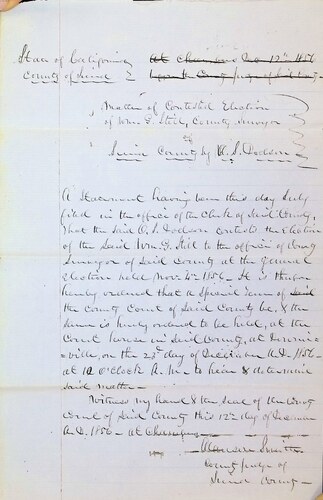 State of California
County of
At Chambers Dec 12th 1856
Matter of Contested Election
of Wm G. Still, County Surveyor
of
County by A. S. Dodson
A Statement having been this day duly
filed in the office of the Clerk of said County,
that the said A. S. Dodson contests the Election
of the said Wm G. Still to the office of County
Surveyor of said County at the general
election held Nov. 4th 1856. It is
hereby ordered that a Special Term of said
the County Court of said County be, & the
same is hereby ordered to be held, at the
Court house in said County, at
ville, on the day of December A.D. 1856
at 10 O'clock A.M. to hear & determine
said matter
Witness my hand & the seal of the County
Court of said County this 12th day of December
A.D. 1856 at Chambers
Smith
County Judge of
County